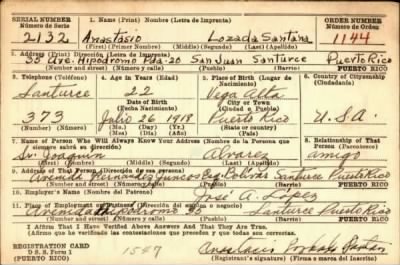 SERIAL NUMBER
Número de Serie
1. Name (Print) Nombre (Letra de Imprenta)
ORDER NUMBER
Número de Orden
2132 Anastasio Lozada Santana 1144
(First) (Primer Nombre) (Middle) (Segundo) (Last) (Apellido)
2. Address (Print) Dirección (Letra de Imprenta)
35 Ave. Hipodromo Pda-20 San Juan Santurce Puerto Rico
(Number and street) (Número y calle) (Town) (Pueblo) (Barrio) PUERTO RICO
3. Telephone (Teléfono)
4. Age in Years (Edad)
5. Place of Birth (Lugar de Nacimiento)
6. Country of Citizenship (Ciudadanía)
Santurce 22 Vega Alta
Date of Birth (Fecha Nacimiento)
City or Town (Ciudad o Pueblo)
373 Julio 26 1918 Puerto Rico U.S.A.
(Number) (Número) (Mo.) (Day) (Yr.) (Mes) (Día) (Año) (State or country) (Estado o país)
7. Name of Person Who Will Always Know Your Address (Nombre de la Persona que siempre sabrá su dirección)
8. Relationship of That Person (Parentesco)
Sr. Joaquin Alvarez amigo
(First) (Nombre) (Middle) (Segundo) (Last) (Apellido)
9. Address of That Person (Dirección de esa Persona)
Avenida Fernandez Juncos Esq. Bolivar Santurce Puerto Rico
(Number and street) (Número y calle) (Town) (Pueblo) (Barrio) PUERTO RICO
10. Employer's Name (Nombre del Patrono)
José A. López
11. Place of Employment (Dirección del empleo o negocio)
Avenida Hipódromo 35 Santurce Puerto Rico
(Number and street) (Número y calle) (Town) (Pueblo) (Barrio) PUERTO RICO
I Affirm That I Have Verified Above Answers And That They Are True.
Afirmo que he verificado las contestaciones que preceden y que éstas son ciertas.
REGISTRATION CARD
D. S. S. Form 1
1547
Anastasio Lozada Santana
(Registrar's signature) (Firma o marca del Inscrito)